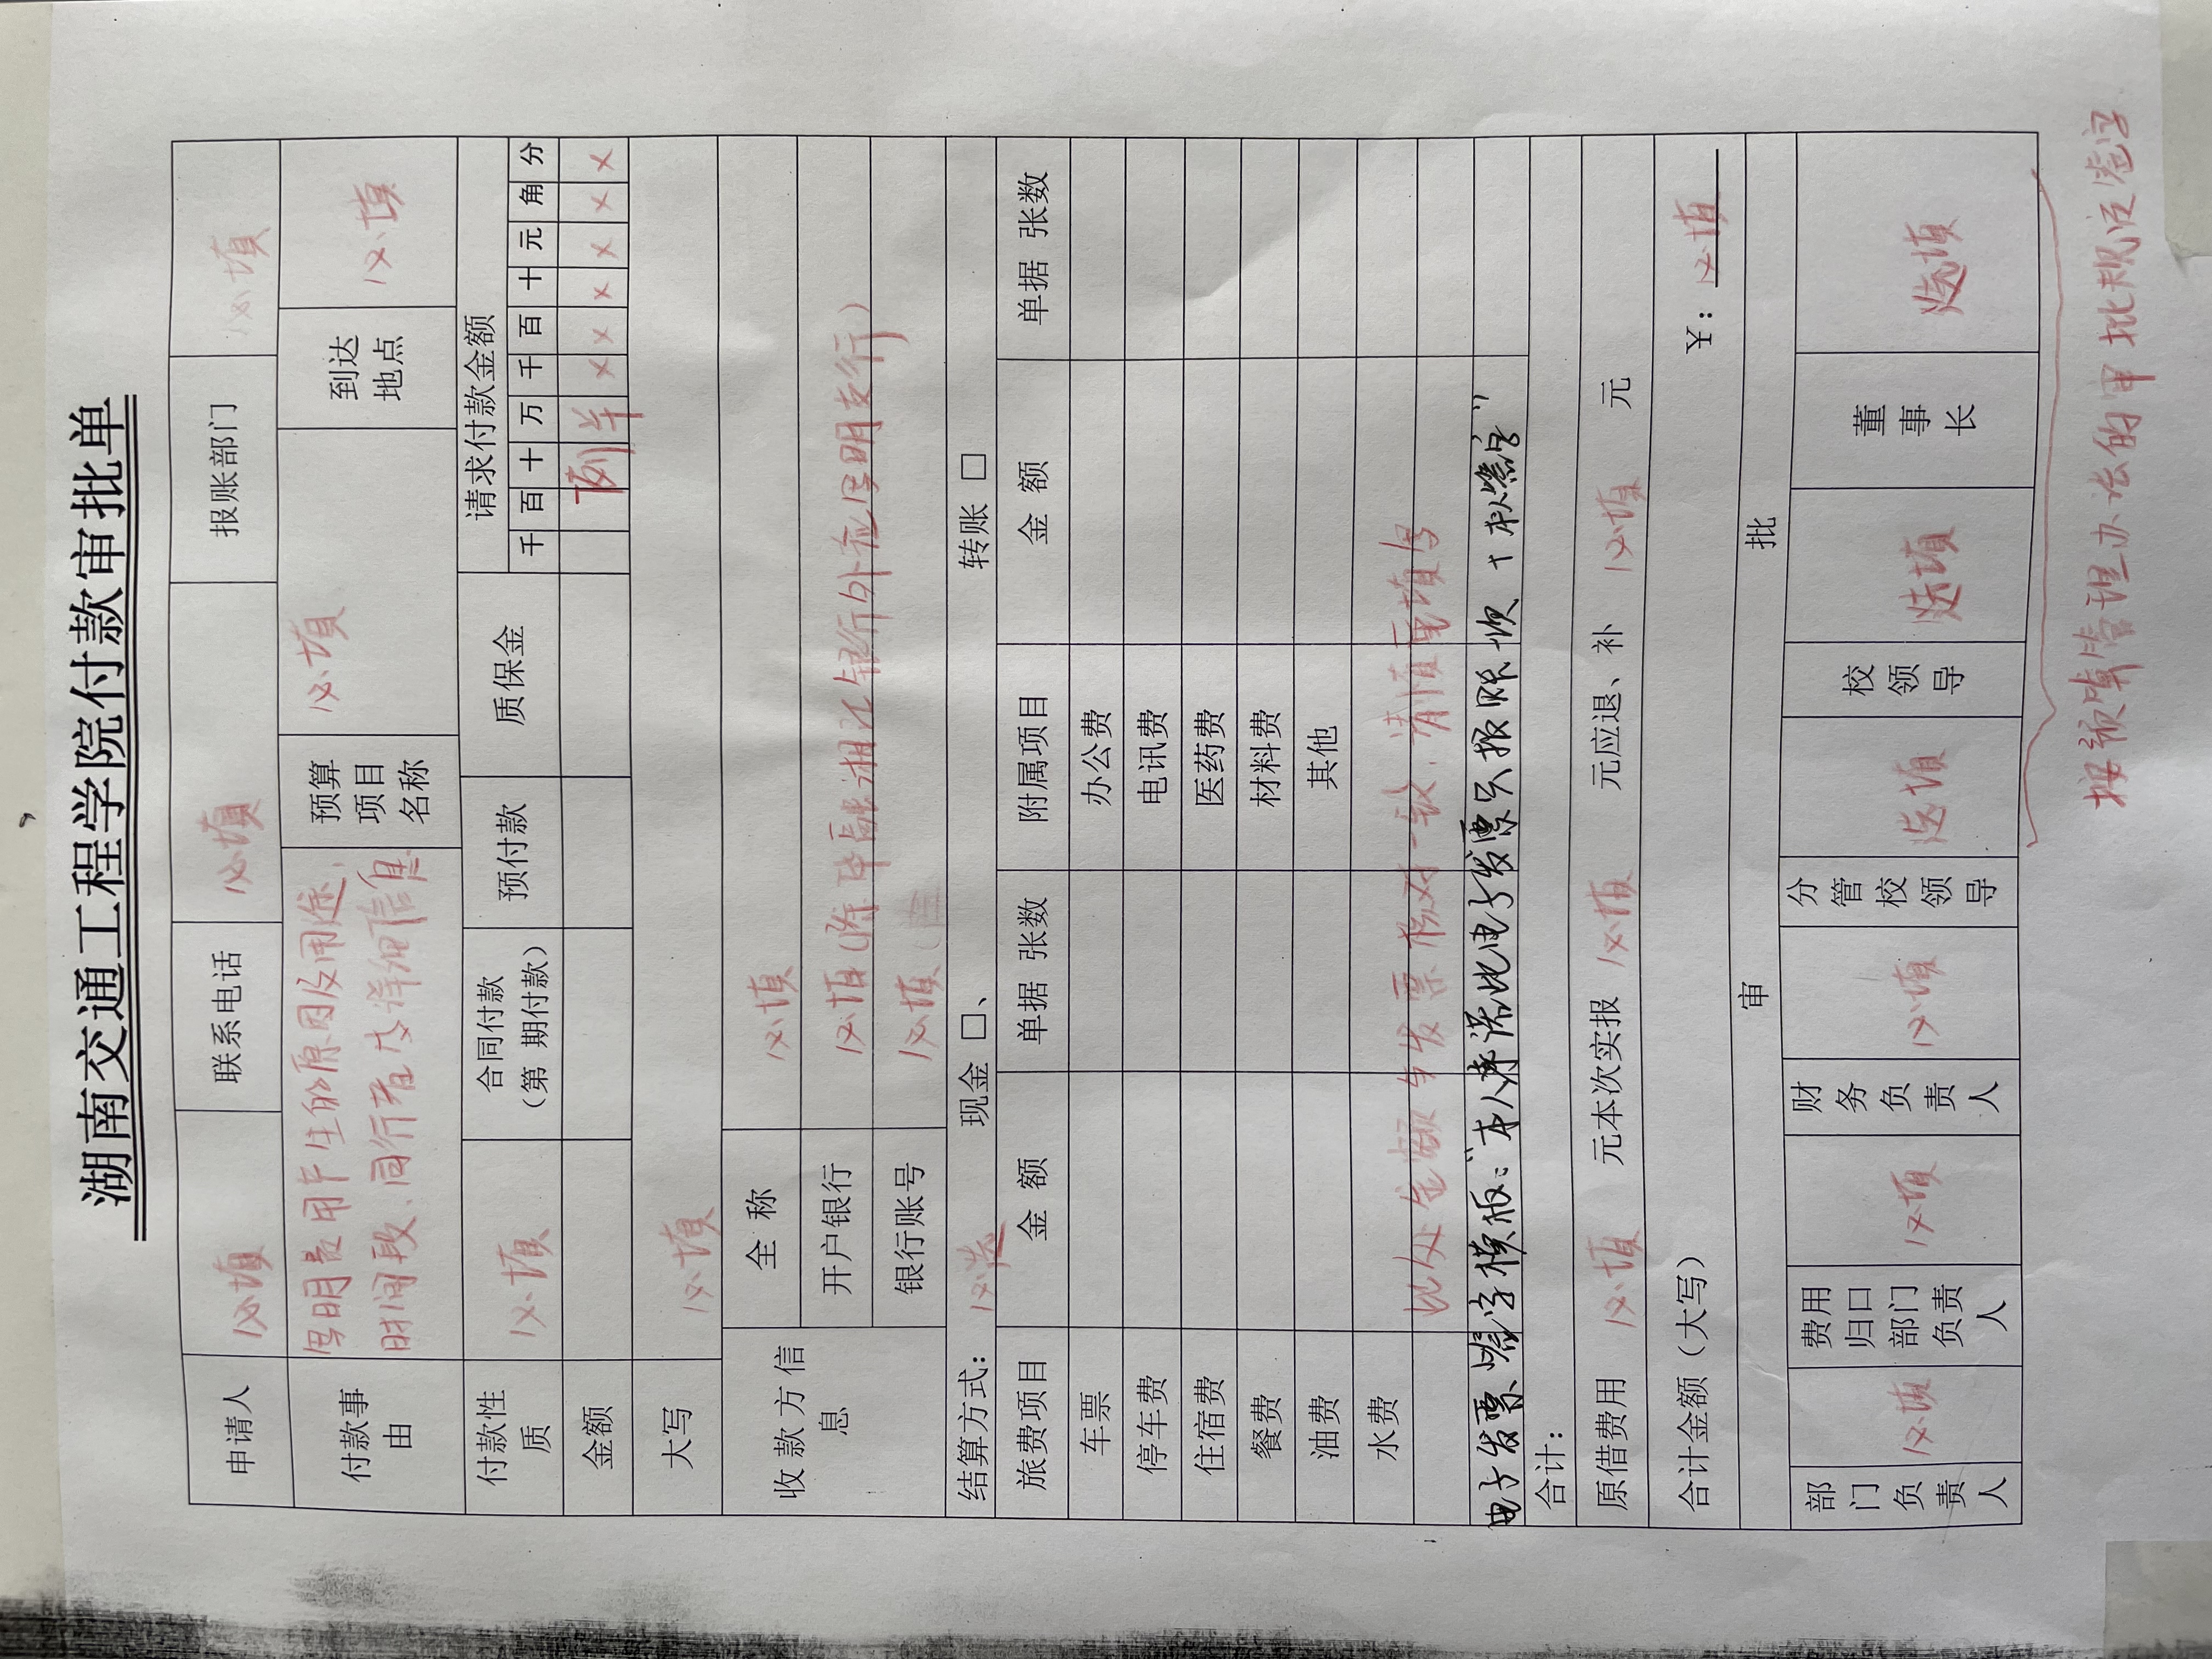 湖南交通工程学院付款审批单
申请人 必填 联系电话 必填 报账部门 必填
付款事由 写明费用产生的原因及用途、时间段、同行者及详细信息 预算项目名称 必填 到达地点 必填
付款性质 必填 合同付款（第 期付款） 预付款 质保金 请求付款金额
千 百 十 万 千 百 十 元 角 分
金额 例 羊 x x x x x x
大写 必填
收款方信息 全 称 必填
开户银行 必填（除中融湘江银行外应写明支行）
银行账号 必填
结算方式： 必选 现金 □、 转账 □
旅费项目 金 额 单据 张数 附属项目 金 额 单据 张数
车票 办公费
停车费 电讯费
住宿费 医药费
餐费 材料费
油费 其他
水费
此处金额与发票核对一致，清楚填写
电子发票签字模板："本人承诺此电子发票只报账一次+本人签字"
合计：
原借费用 必填 元本次实报 必填 元应退、补 必填 元
合计金额（大写） ¥：必填
审 批
部门负责人 必填 费用归口部门负责人 必填 财务负责人 必填 分管校领导 选填 校领导 选填 董事长 选填
按预算管理办法的审批规定签字